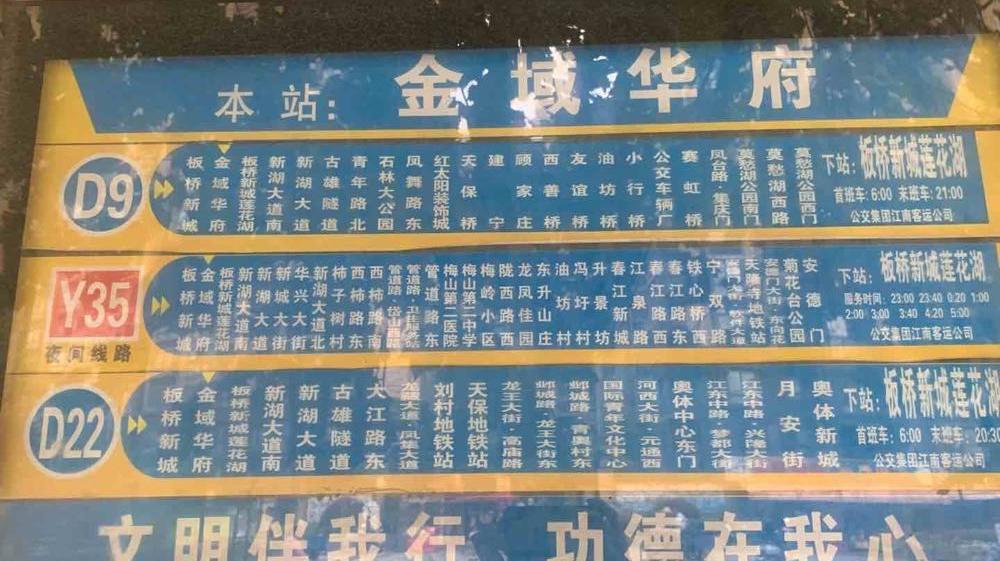 本站：金域华府
D9
板桥新城 金域华府 板桥新城莲花湖 新湖大道南 新湖大道 古雄隧道 青年路北 石林大公园 凤舞路东 红太阳装饰城 天保桥 建宁 顾家庄 西善桥 友谊桥 油坊桥 小行桥 公交车辆厂 赛虹桥 凤台路·集庆门 莫愁湖公园南门 莫愁湖西路 莫愁湖公园西门
下站：板桥新城莲花湖
首班车：6:00 末班车：21:00
公交集团江南客运公司
Y35
夜间线路
板桥新城 金域华府 板桥新城莲花湖 新湖大道南 新湖大道 新城大街 华兴大街 新湖大道北 柿子树村 西柿路东 西柿路南 管道路·岱山路 管道路东 梅山第二医院 梅山第二中学 梅岭小区 陇西路西 龙凤佳园 东升山庄 油坊村 冯圩村 升景坊 春江新城 江泉路 春江路西 春江路东 铁心桥西 宁双路 天隆寺地铁站 安德门大街·东向花 菊花台公园 安德门
下站：板桥新城莲花湖
服务时间：23:00 23:40 0:20 1:00
2:00 3:00 3:40 4:20 5:00
公交集团江南客运公司
D22
板桥新城 金域华府 板桥新城莲花湖 新湖大道南 新湖大道 古雄隧道 大江路东 龙藏大道·凤集大道 刘村地铁站 天保地铁站 龙王大街·高庙路 邺城路·龙王大街东 邺城路·青奥村东 国际青年文化中心 河西大街·元通西 奥体中心东门 江东中路·梦都大街 江东中路·兴隆大街 月安街 奥体新城
下站：板桥新城莲花湖
首班车：6:00 末班车：20:30
公交集团江南客运公司
文明伴我行 功德在我心